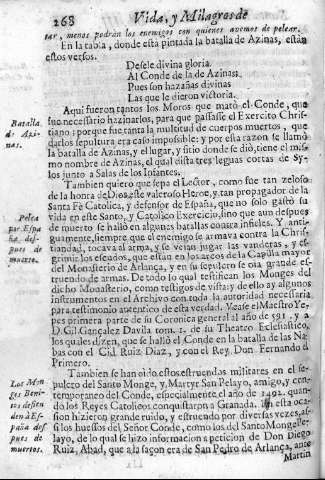 268 Vida, y Milagros de
tar, menos podrán los enemigos con quienes avemos de pelear.
En la tabla, donde esta pintada la batalla de Azinas, están
estos versos.
Desele divina gloria
Al Conde de la de Azinas,
Pues son hazañas divinas
Las que le dieron victoria.
Batalla de Azinas.
Aqui fueron tantos los Moros que mató el Conde, que
fue necessario hazinarlos, para que passasse el Exercito Chris-
tiano; porque fue tanta la multitud de cuerpos muertos, que
darlos sepultura era caso impossible: y por esta razon se llamó
la batalla de Azinas, y el lugar, y sitio donde se dió, tiene el mis-
mo nombre de Azinas, el qual dista tres leguas cortas de Sy-
los junto à Salas de los Infantes.
Tambien quiero que sepa el Lector, como fue tan zeloso
de la honra de Dios este valeroso Heroe, y tan propagador de la
Santa Fè Catolica, y defensor de España, que no solo gastó su
Pelea por España despues de muerto.
vida en este Santo, y Catolico Exercicio, sino que aun despues
de muerto se halló en algunas batallas contra infieles. Y anti-
guamente, siempre que el enemigo se armava contra la Chris-
tiandad, tocava al arma, y se veían jugar las vanderas, y es-
grimir los escudos, que están en los arcos de la Capilla mayor
del Monasterio de Arlança, y en su sepulcro se oía grande es-
truendo de armas. De todo lo qual testifican los Monges del
dicho Monasterio, como testigos de vista: y de ello ay algunos
instrumentos en el Archivo con toda la autoridad necessaria
para testimonio autentico de esta verdad. Vease el Maestro Ye-
pes primera parte de su Coronica general al año de 591. y a
D. Gil Gonçalez Davila tom. 1. de su Theatro Eclesiastico,
los quales dizen, que se halló el Conde en la batalla de las Na-
bas con el Cid Ruiz Diaz, y con el Rey Don Fernando el
Primero.
Los Monges Benitos desienden à España despues de muertos.
Tambien se han oìdo estos estruendos militares en el se-
pulcro del Santo Monge, y Martyr San Pelayo, amigo, y con-
temporaneo del Conde, especialmente el año de 1492. quan-
do los Reyes Catolicos conquistaron a Granada. En esta oca-
sion hizieron grande ruido, y estruendo por diversas vezes, as-
si los huessos del Señor Conde, como los del Santo Monge Pe-
layo, de lo qual se hizo informacion a peticion de Don Diego
Ruiz, Abad, que à la saçon era de San Pedro de Arlança, ante
Martin